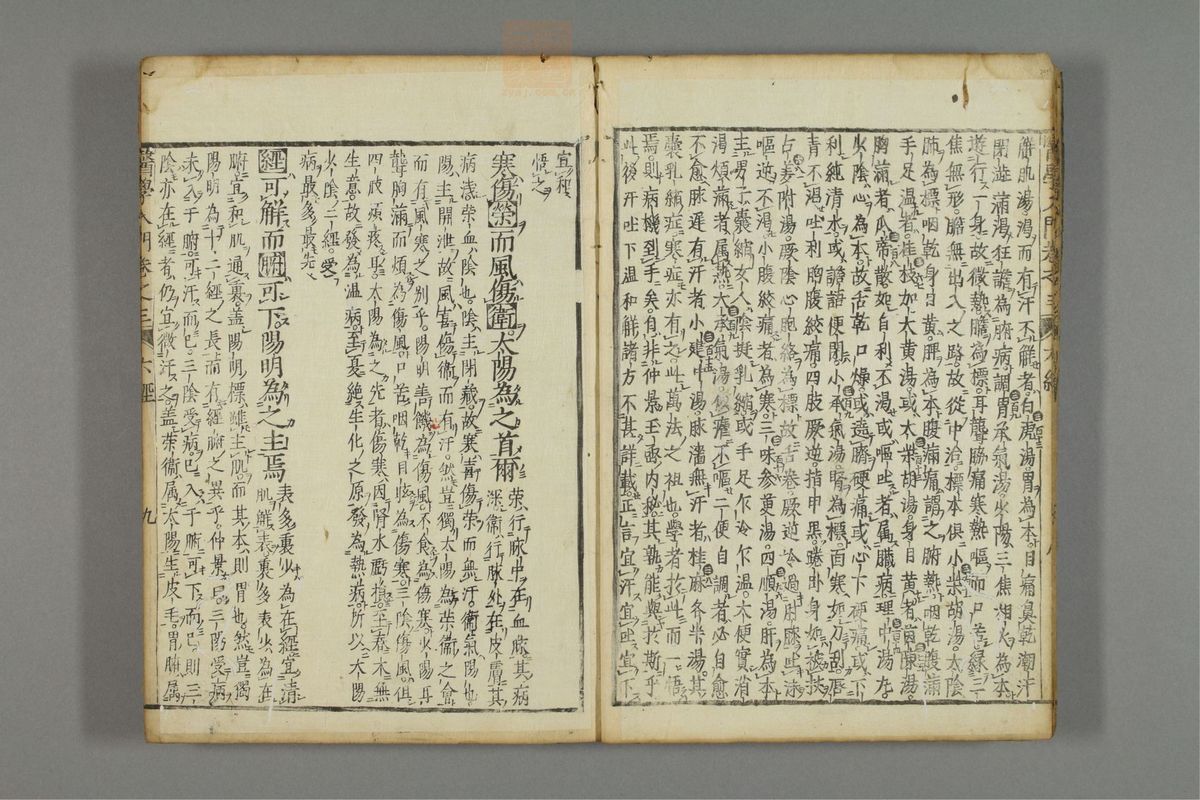 解肌湯渴而有汗不解者白虎湯胃為本目痛鼻乾潮汗
閉澁滿渴狂譫為腑病調胃承氣湯少陽三焦相火為本
遊行一身故微熱膽為標耳聾脇痛寒熱嘔而口苦緣三
焦無形膽無出入之路故從中治標本俱小柴胡湯太陰
肺為標咽乾身目黃脾為本腹滿痛謂之腑熱咽乾腹滿
手足溫者桂枝加大黃湯或大柴胡湯身目黃者茵陳湯
胸滿者瓜蒂散如自利不渴或嘔吐者屬臟病理中湯
火陰心為本故舌乾口燥或遶臍硬痛或心下硬痛或下
利純清水或譫語便閉小承氣湯腎為標面寒如刀刮唇
青不渴吐利胸腹絞痛四肢厥逆指甲黑踡卧身如被杖
嘔逆不渴小腹絞痛者為寒三味參萸湯四順湯肝為本
男子囊縮女人陰挺乳縮或手足乍冷乍溫大便實消
渴煩滿者屬熱大承氣湯似瘧不嘔二便自調者必自愈
不愈脉遲有汗者小建中湯脉濇無汗者桂麻各半湯其
囊乳縮症寒症亦有之此萬法之祖也學者於此而一悟
焉則病機到手矣自非仲景王函内秘其孰能與於斯乎
此後汗吐下溫和解諸方不其詳載正言宜汗宜吐宜下
宜和
悟之
寒傷榮而風傷衛太陽為之首爾
榮行脉中在血脉其病
深衛行脉外在皮膚其
病淺榮血陰也陰主閉藏故寒喜傷榮而無汗衛氣陽也
陽主開泄故風喜傷衛而有汗然豈獨太陽為榮衛之會
而有風寒之別乎陽明善饑為傷風不食為傷寒少陽耳
聾胸滿而煩為傷風口苦咽乾目眩為傷寒三陰傷風俱
四肢煩疼耳太陽為之先者傷寒因腎水虧損至春木無
生意故發為溫病至夏絶生化之原發為熱病所以太陽
火陰二經受
病最多最先
經可解而腑可下陽明為之主焉
表多裏少為在經宜清
肌解表裏多表少為在
腑宜和肌通裏蓋陽明標雖主肌而其本則胃也然豈獨
陽明為十二經之長而有經腑之異乎仲景曰三陽受病
未入于腑可汗而已三陰受病已入于腑可下而已則三
陰亦在經者仍宜微汗之蓋榮衛屬太陽主皮毛胃腑屬
醫學入門卷之三
六經
九